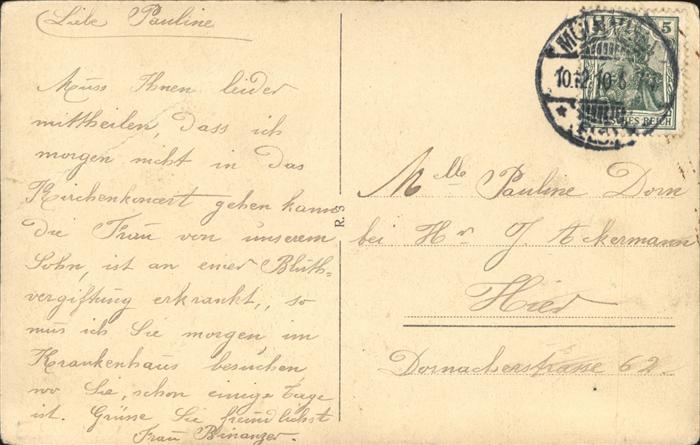 Liebe Pauline
Muss Ihnen leider
mittheilen, dass ich
morgen nicht in das
Kirchenkoncert gehen kann
die Frau von unserem
Sohn, ist an einer Bluth-
vergiftung erkrankt, so
mus ich Sie morgen im
Krankenhaus besuchen
wo Sie, schon einige Tage
ist. Grüsse Sie freundlichst
Frau Binanzer.
R. S
5
10.12.10.6-7
DEUTSCHES REICH
Mlle Pauline Dorn
bei Hr J. Ackermann
Hier
Dornacherstrasse 62.